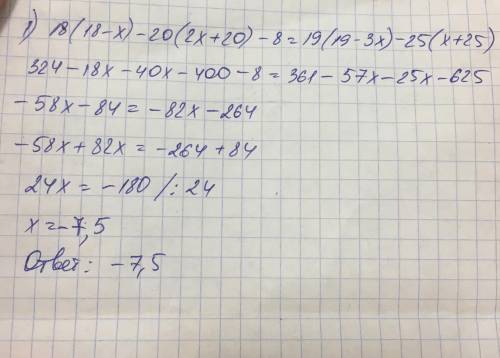 1) 18(18-x)-20(2x+20)-8=19(19-3x)-25(x+25)
324-18x-40x-400-8=361-57x-25x-625
-58x-84=-82x-264
-58x+82x=-264+84
24x=-180 /:24
x=-7,5
Ответ: -7,5